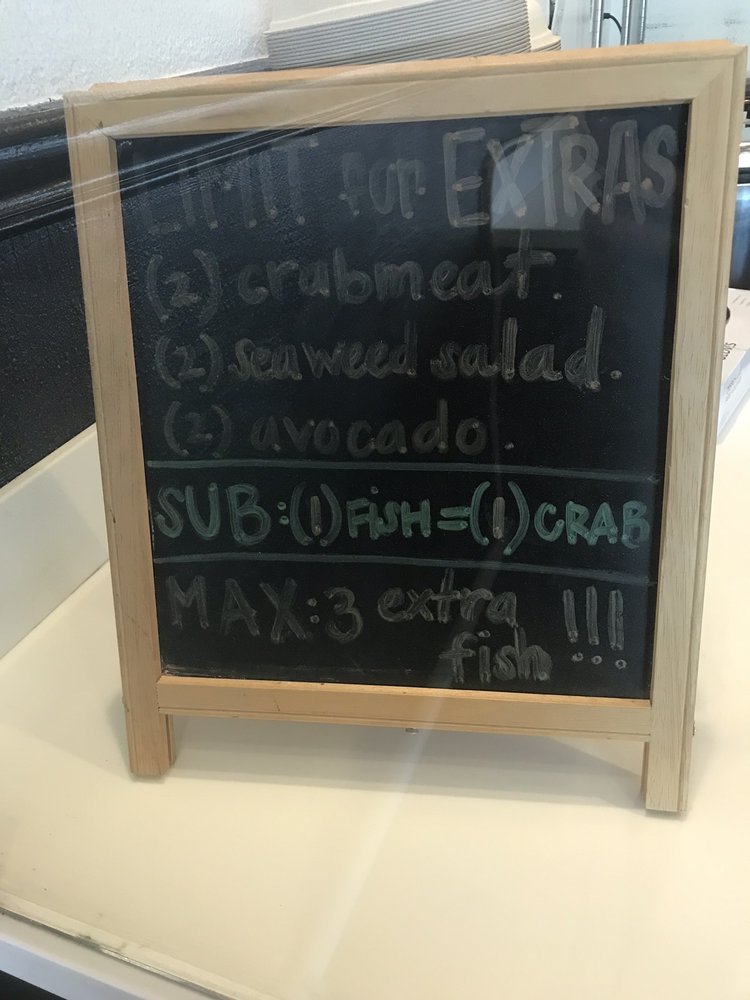 LIMIT for EXTRAS
(2) crabmeat.
(2) seaweed salad.
(2) avocado.
SUB:(1) FiSH=(1) CRAB
MAX:3 extra
fish !!!